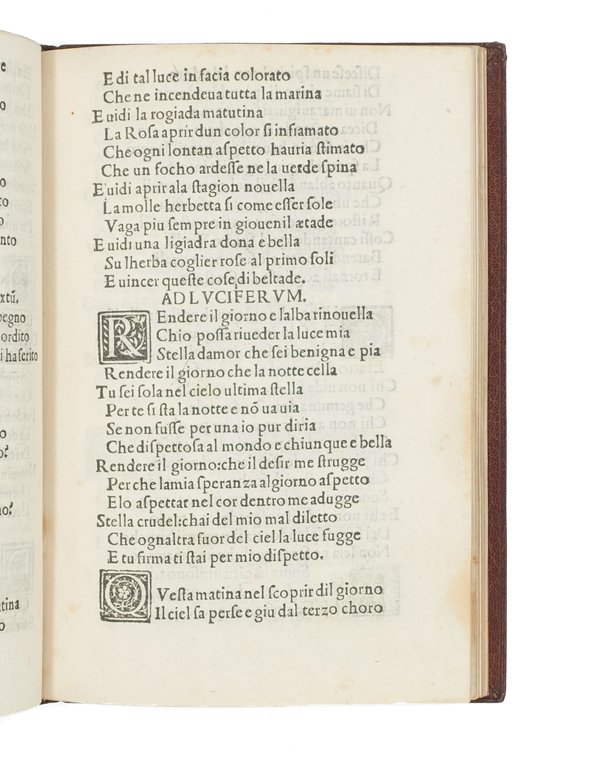 E di tal luce in facia colorato
Che ne incendeua tutta la marina
E uidi la rogiada matutina
La Rosa aprir dun color si infiamato
Che ogni lontan aspetto hauria stimato
Che un focho ardesse ne la uerde spina
E uidi aprir ala stagion nouella
La molle herbetta si come esser sole
Vaga piu sempre in giouenil ætade
E uidi una ligiadra dona e bella
Su lherba coglier rose al primo soli
E uincer queste cose di beltade.
AD LVCIFERVM.
REndere il giorno e lalba rinouella
Chio possa riueder la luce mia
Stella damor che sei benigna e pia
Rendere il giorno che la notte cella
Tu sei sola nel cielo ultima stella
Per te si sta la notte e nõ ua uia
Se non fusse per una io pur diria
Che dispettosa al mondo e chiunque e bella
Rendere il giorno:che il desir me strugge
Per che la mia speranza al giorno aspetto
E lo aspettar nel cor dentro me adugge
Stella crudel:chai del mio mal diletto
Che ognaltra fuor del ciel la luce fugge
E tu firma ti stai per mio dispetto.
QVesta matina nel scoprir dil giorno
Il ciel sa perse e giu dal terzo choro